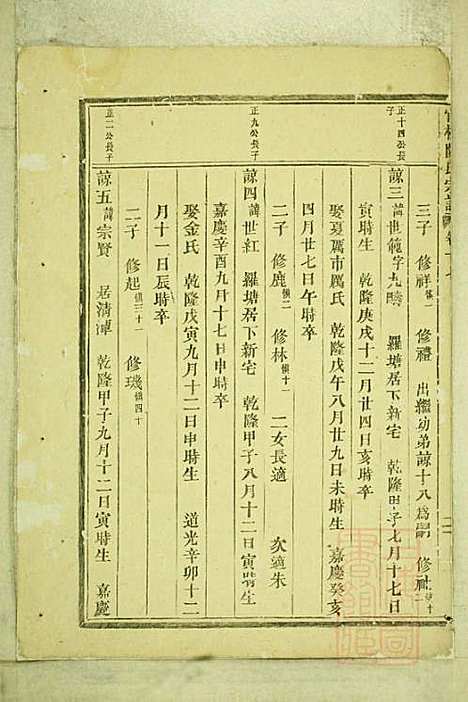 三子 修祥 慎一 修禮 出繼幼弟諒十八爲嗣 修
正十四公長子
諒三 諱世範字九疇 羅塘居下新宅 乾隆甲子七月十七日
寅時生 乾隆庚戌十二月廿四日亥時卒
娶夏厲市厲氏 乾隆戊午八月廿九日未時生 嘉慶癸亥
四月廿七日午時卒
二子 修鹿 慎二 修林 慎十一 二女長適 次適朱
正九公長子
諒四 諱世紅 羅塘居下新宅 乾隆甲子八月十二日寅時生
嘉慶辛酉九月十七日申時卒
娶金氏 乾隆戊寅九月十二日申時生 道光辛卯十二
月十一日辰時卒
二子 修起 慎三十一 修璣 慎四十
正二公長子
諒五 諱宗賢 居清潭 乾隆甲子九月十二日寅時生 嘉慶